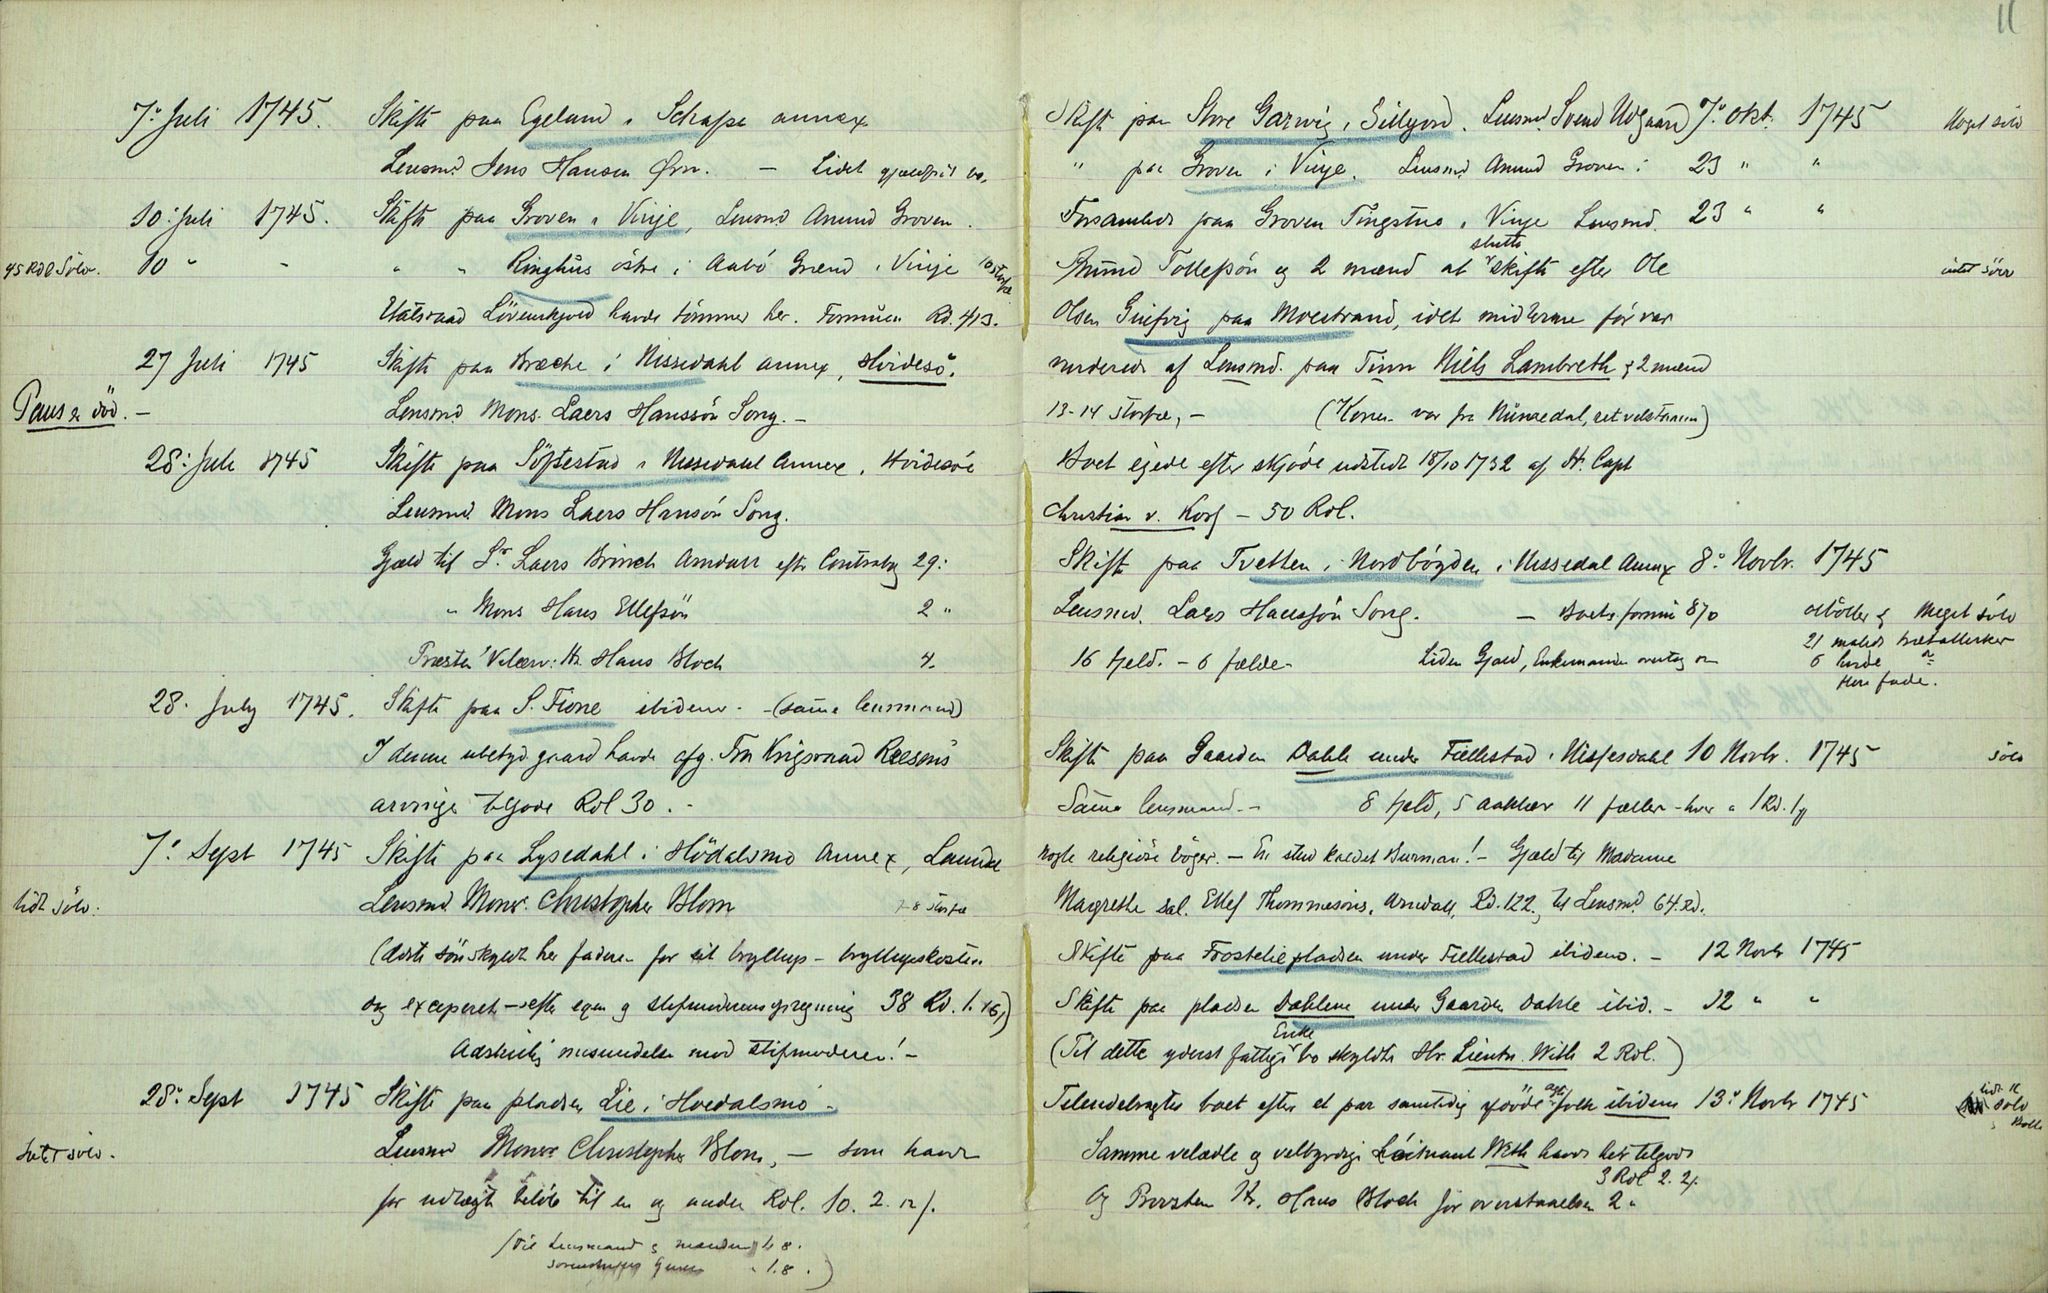 7: Juli 1745. Skifte paa Egeland i Schafse annex
Lensmd. Jens Hansen Ørn. — Lidet gjældfrit bo.
10: Juli 1745. Skifte paa Groven i Vinje, Lensmd. Amund Groven.
45 Rdl Sölv. 10 " - " " Ringhus östre i Aabö Grænd i Vinje 10 storfæ
Etatsraad Lövenskjold havde tömmer her. Formuen Rd. 413.
27 Juli 1745 Skifte paa Bræche i Nissedahl annex, Hvidesö.
Paus er död. — Lensmd. Mons. Laers Hanssön Song. —
28: Juli 1745 Skifte paa Söftestad i Nissedahl Annex, Hvidesöe
Lensmd. Mons Laers Hansön Song.
Gjæld til Sr. Laers Brinch Arndall efter Contrabog 29:
" Mons Hans Ellefsön 2 "
Præsten Velærv: Hr. Hans Bloch 4.
28. July 1745. Skifte paa S. Tione ibidem. - (samme lensmand)
I denne ubetyd. gaard havde afg. Fru Krigsraad Reesens
arvinger tilgode Rdl 30. -
7: Sept 1745 Skifte paa Lysedahl i Hödalsmo Annex, Laurdal
lidt sölv. Lensmd. Monsr. Christopher Blom 7-8 storfæ
(Ældste sön skyldte her faderen for sit bryllup - bryllupskosten
og exciperet - efter egen og stefmoderens opregning 38 Rd. 1. 16,)
Adskillig misundelse mod stifmoderen! -
28: Sept 1745 Skifte paa pladsen Lie i Hvedalsmo -
intet sölv. Lensmd Monsr Christopher Blom, — som havde
for udlagte beløb til en og anden Rdl. 10. 2. 12/.
(Til Lensmand og mændene 4. 8.
Sorenskriver 1.8.)
11
Skifte paa Store Garvig i Sillejord. Lensmd. Svend Udgaard 7: Okt. 1745 Noget sölv
" paa Groven i Vinje. Lensmd. Amund Groven: 23 " "
Forsamlede paa Groven Tingstue i Vinje Lensmd. 23 " "
Amund Tollefsön og 2 mænd at slutte skifte efter Ole intet sölv
Olsen Guifvig paa Moestrand, idet midlerne för var
vurderede af Lensmd. paa Tinn Niels Lambreth & 2 mænd
13-14 storfæ, - (Konen var fra Numedal, ret velstaaende)
Boet ejede efter skjöde udstedt 18/10 1732 af Hr. Capt
Christian v. Korf - 50 Rdl.
Skifte paa Tvetten i Nordbögden i Nissedal Annex 8: Novbr. 1745
Lensmd. Laers Hanssön Song. — Boets formue 870 Meget sölv
21 malede trætallerker
16 fjeld. - 6 fælde - Liden Gjæld, Enkemanden 6 hvide
flere fade.
Skifte paa Gaarden Dahle under Fiellestad i Nissesdahl 10 Novbr. 1745 sölv
Samme lensmand. - 8 fjeld, 5 aaklær 11 fæller - hver a 1 Rd. 1 /
nogle religiöse böger. - En stud kaldet Burman! - Gjæld til Madame
Margrethe sal. Ellef Thommesöns, Arndall, Rd. 122, til Lensmd. 64. Rd.
Skifte paa Frostelie pladsen under Fiellestad ibidem. - 12 Novbr 1745
Skifte paa pladsen Dahlene under Gaarden Dahle ibid. - 12 " "
(Til dette yderst fattige Enke bo skyldte Hr. Lieutn. With 2 Rdl.)
Tilendebragtes boet efter et par samtidig döde ægtefolk ibidem 13: Novbr 1745 lidt sölv
Samme velædle og velbyrdige Löitnant With havde her tilgode
3 Rdl 2. 2/.
Og Præsten Hr. Hans Bloch for 2 "